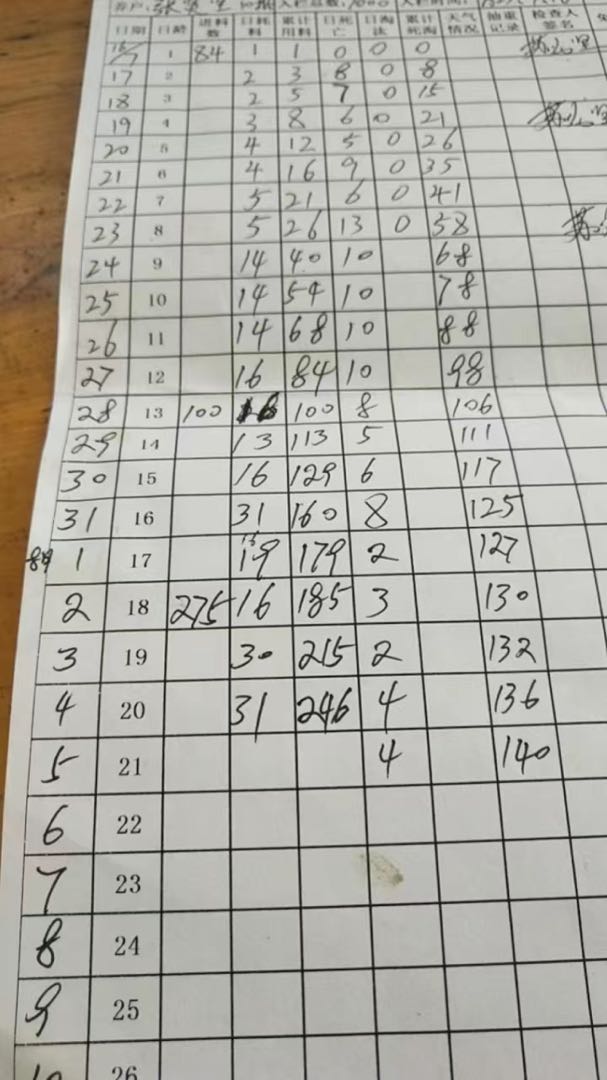 养户: 张 入栏总数: 入栏时间:
日期 日龄 进料数 日耗料 累计用料 日死亡 日淘汰 累计死淘 天气情况 抽重记录 检查人签名
16/7 1 84 1 1 0 0 0
17 2 2 3 8 0 8
18 3 2 5 7 0 15
19 4 3 8 6 0 21
20 5 4 12 5 0 26
21 6 4 16 9 0 35
22 7 5 21 6 0 41
23 8 5 26 13 0 58
24 9 14 40 10 68
25 10 14 54 10 78
26 11 14 68 10 88
27 12 16 84 10 98
28 13 100 16 100 8 106
29 14 13 113 5 111
30 15 16 129 6 117
31 16 31 160 8 125
1 17 19 179 2 127
2 18 275 16 185 3 130
3 19 30 215 2 132
4 20 31 246 4 136
5 21 4 140
6 22
7 23
8 24
9 25
10 26